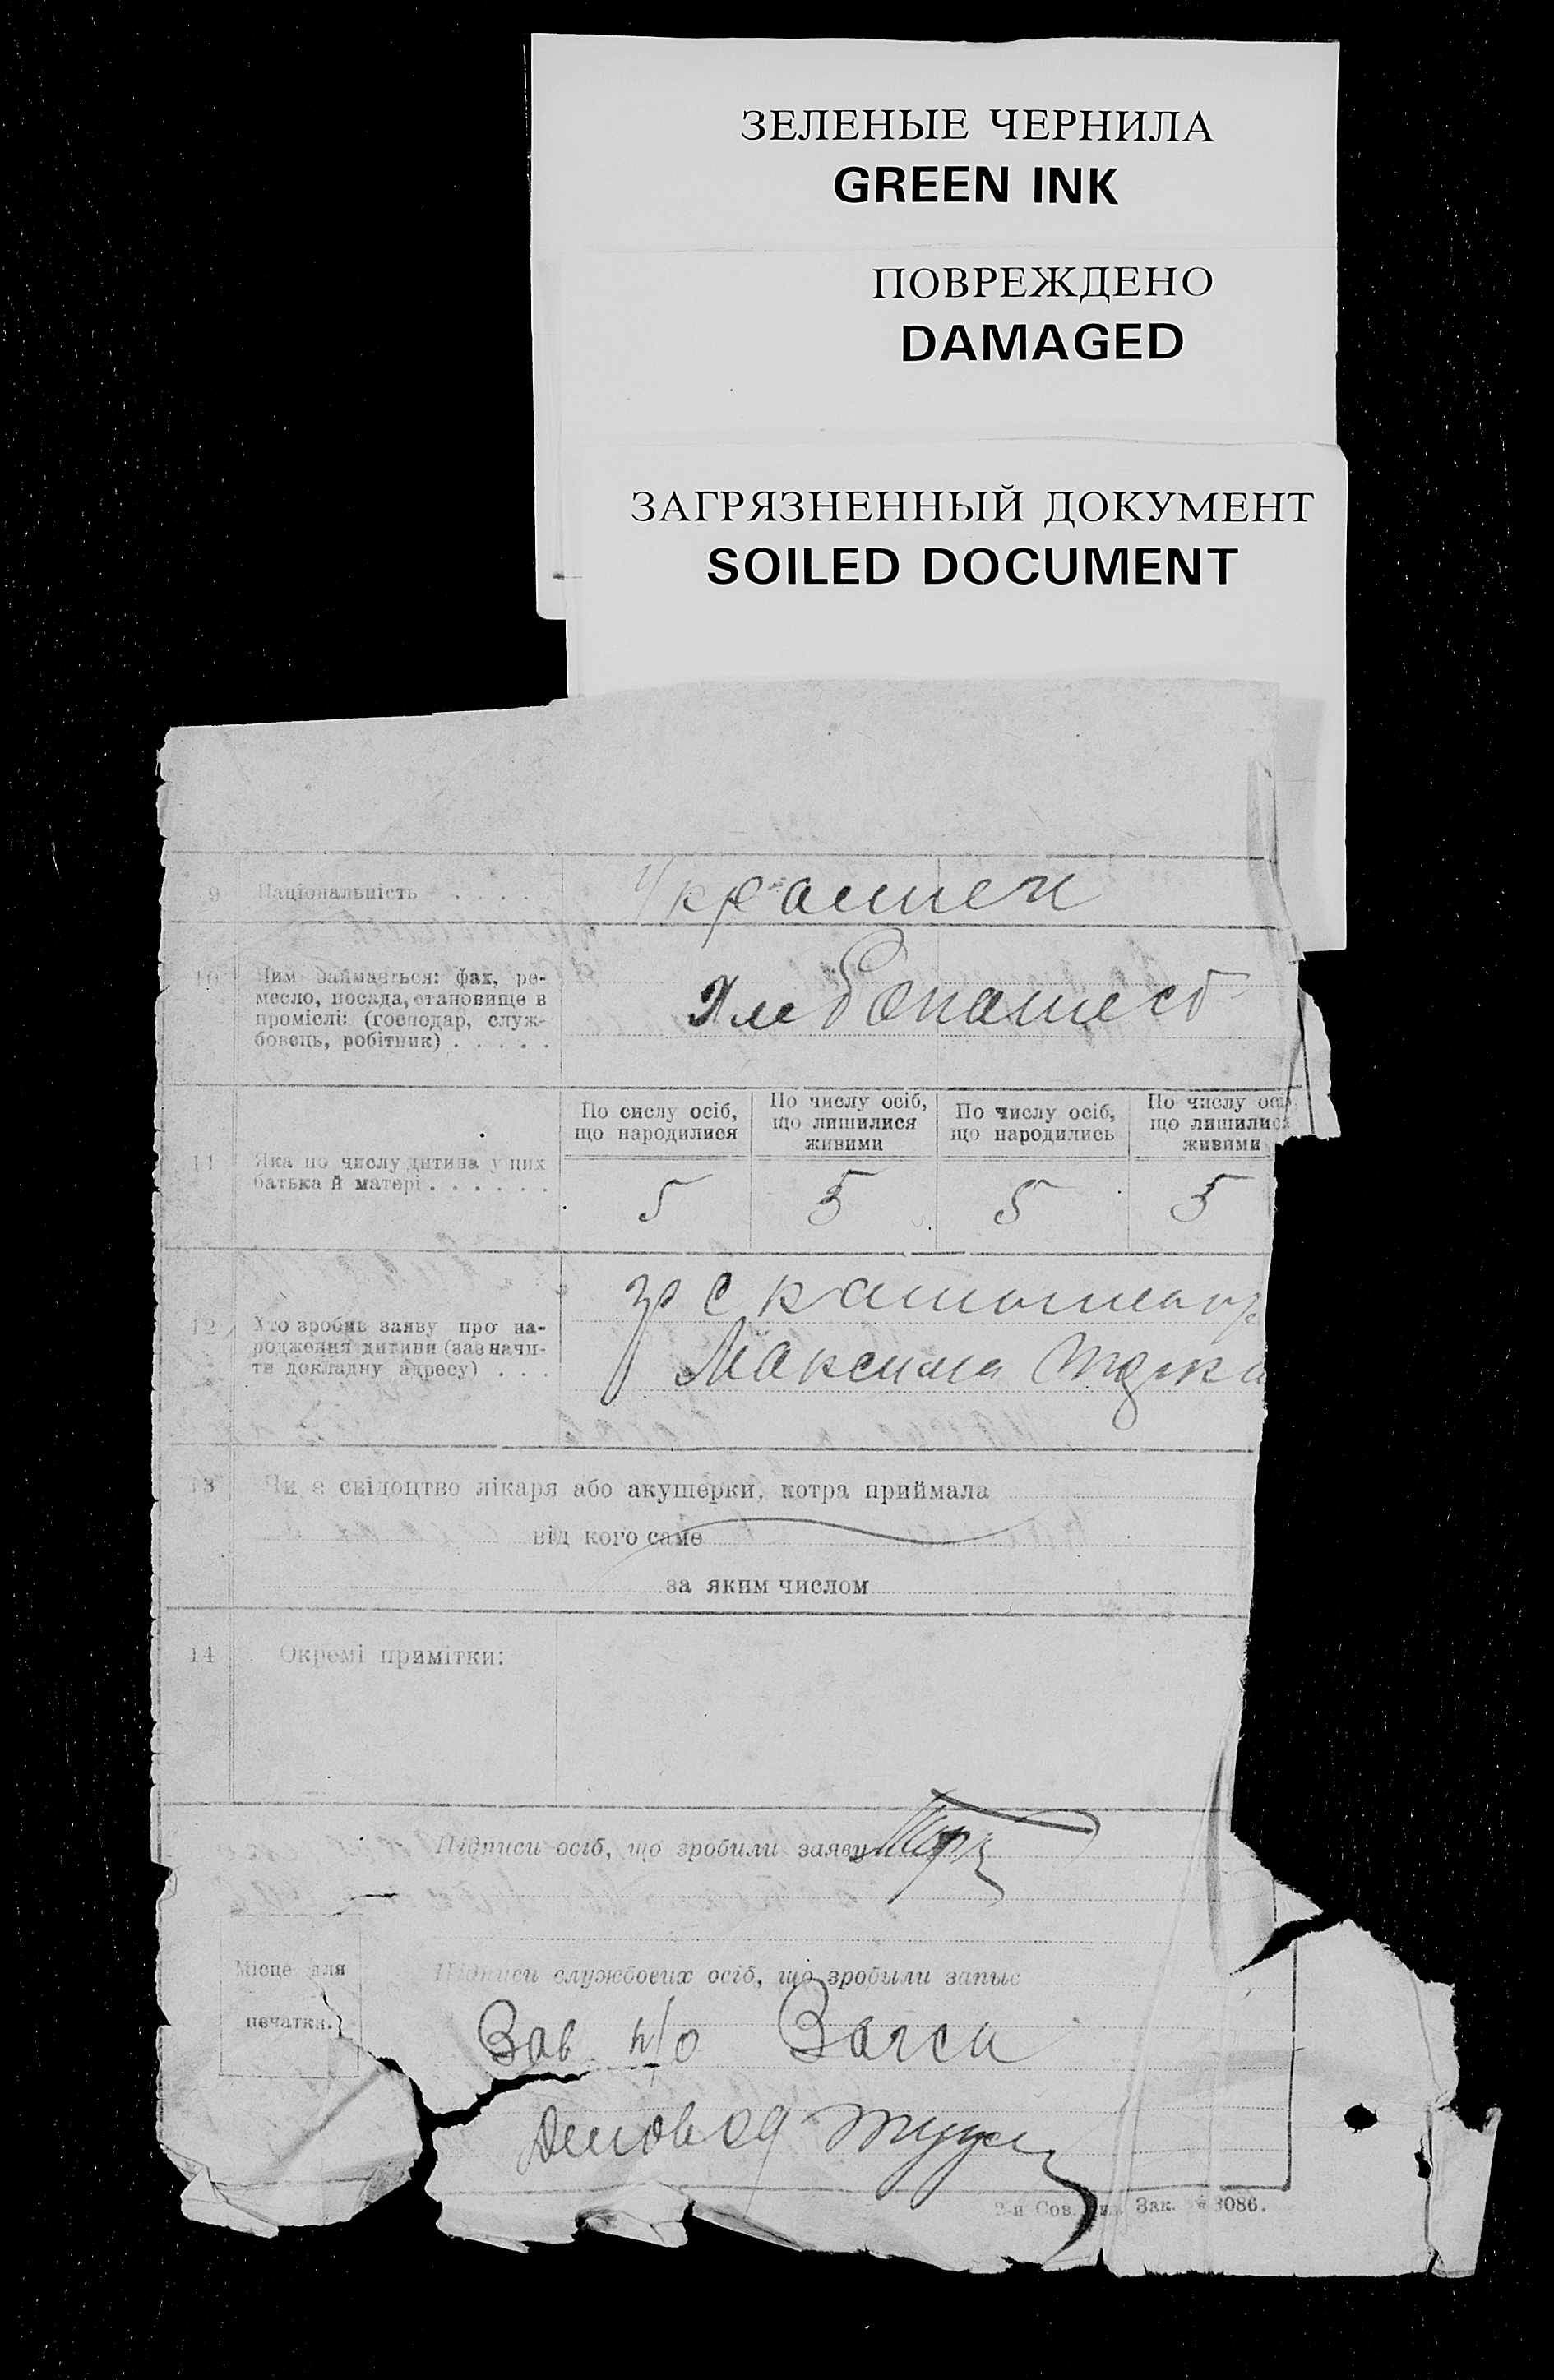 ЗЕЛЕНЫЕ ЧЕРНИЛА
GREEN INK
ПОВРЕЖДЕНО
DAMAGED
ЗАГРЯЗНЕННЫЙ ДОКУМЕНТ
SOILED DOCUMENT
9 Національність . . . . .
10 Чим займається: фах, ре-
месло, посада, становище в
проміслі: (господар, служ-
бовець, робітник) . . . . .
Хлебопашест
11 Яка по числу дитина у цих
батька й матері . . . . . .
По сислу осіб,
що народилися
По числу осіб,
що лишилися
живими
По числу осіб,
що народились
По числу осі
що лишилися
живими
5 5 5 5
12 Хто зробив заяву про на-
родження дитини (зазначи-
ти докладну адресу) . . .
Максима
13 Чи є свідоцтво лікаря або акушерки, котра приймала
від кого саме
за яким числом
14 Окремі примітки:
Підписи осіб, що зробили заяву
Місце для
печатки.
Підписи службових осіб, що зробыли запыс
Зав п/о Загса
Деловод
2-я Сов. Зак. № 3086.